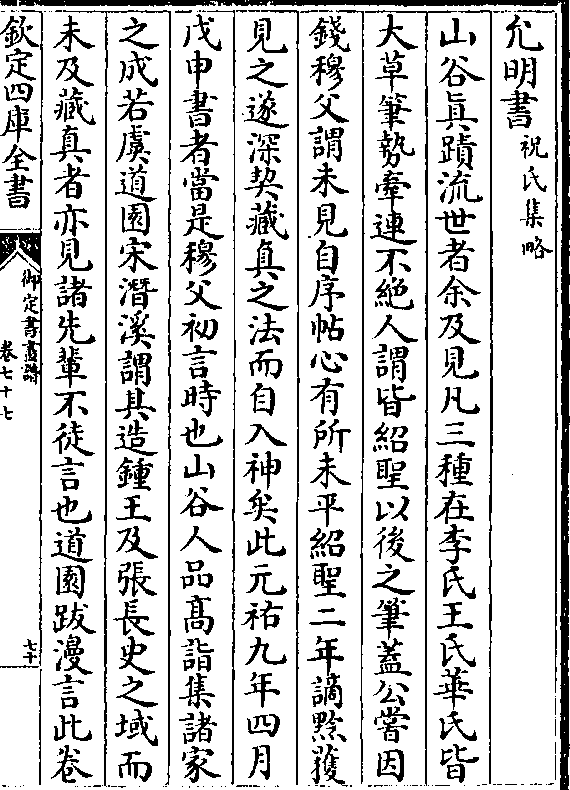 允明書祝氏集略
山谷真蹟流世者余及見凡三種在李氏王氏華氏皆
大草筆勢牽連不絶人謂皆紹聖以後之筆蓋公嘗因
錢穆父謂未見自序帖心有所未平紹聖二年謫黔獲
見之遂深契藏真之法而自入神矣此元祐九年四月
戊申書者當是穆父初言時也山谷人品髙詣集諸家
之成若虞道園宋潛溪謂其造鍾王及張長史之域而
未及藏真者亦見諸先輩不徒言也道園跋漫言此卷
欽定四庫全書
御定書畫譜
卷七十七
七十